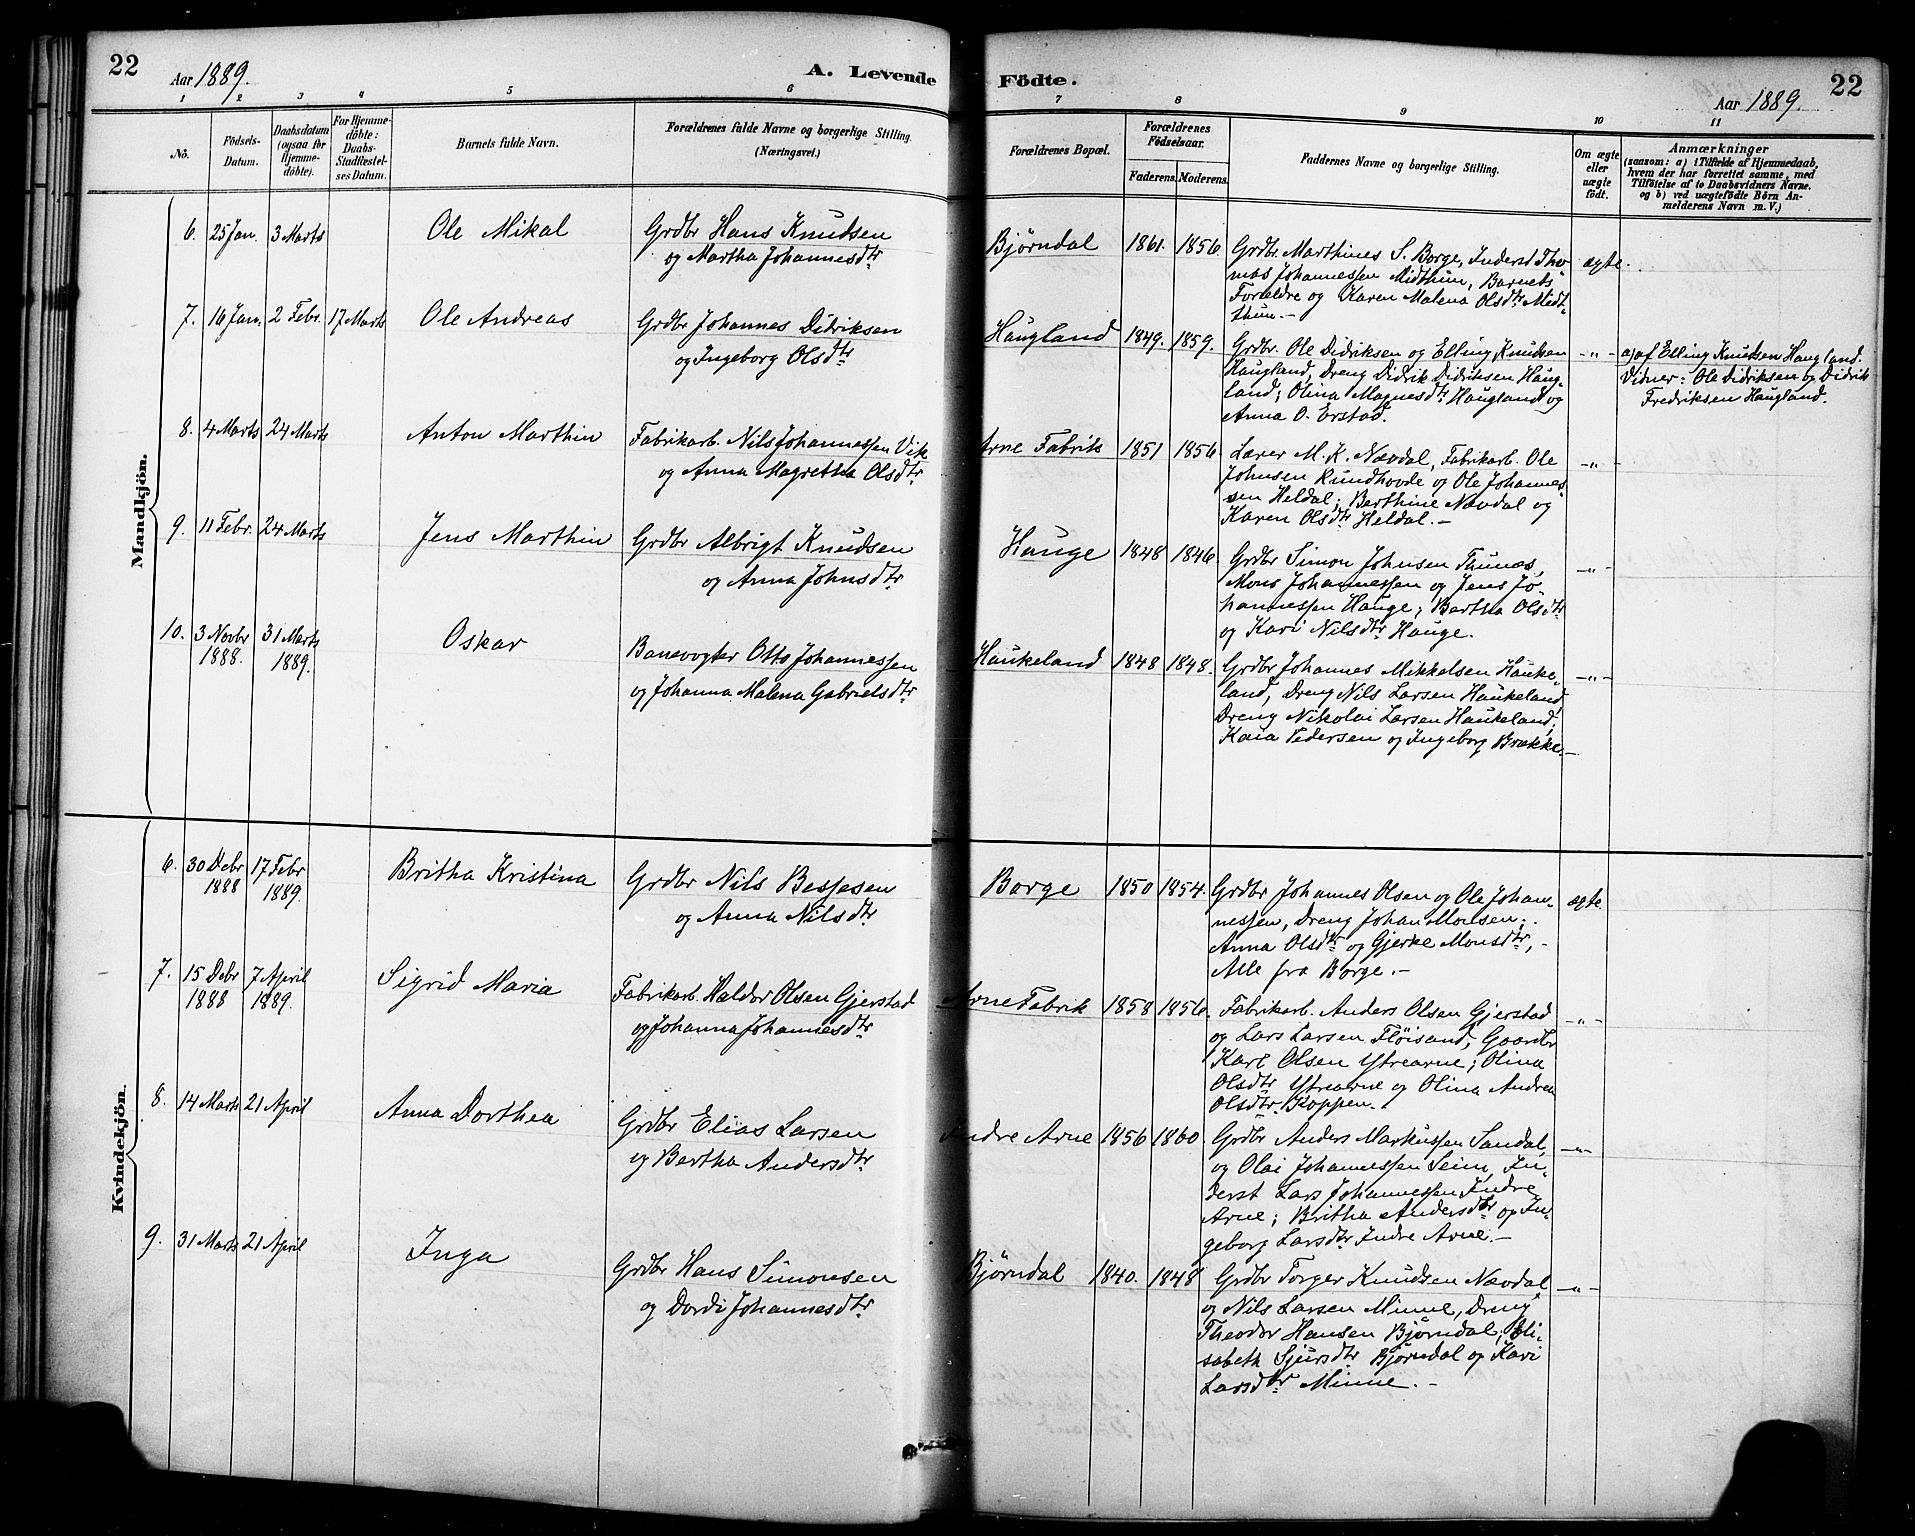 22
Aar 1889.
A. Levende
Födte.
Aar 1889.
22
1 2 3 4 5 6 7 8 9 10 11
No.
Födsels-
Datum.
Daabsdatum
(ogsaa for
Hjemme-
döbte).
For Hjemme-
döbte:
Daabs-
Stadfæstel-
ses Datum.
Barnets fulde Navn.
Forældrenes fulde Navne og borgerlige Stilling.
(Næringsvei.)
Forældrenes Bopæl.
Forældrenes
Födselsaar.
Faderens. Moderens.
Faddernes Navne og borgerlige Stilling.
Om ægte
eller
uægte
født.
Anmærkninger
(saasom: a) i Tilfælde af Hjemmedaab,
hvem der har forrettet samme, med
Tilföielse af to Daabsvidners Navne.
og b) ved uægtefödte Börn An-
melderens Navn m. V.)
Mandkjön.
6. 25 Jan. 3 Marts
Ole Mikal
Grdbr Hans Knudsen
og Martha Johannesdtr
Bjørndal 1861. 1856.
Grdbr. Marthines S. Borge, Inderst Tho-
mas Johannessen Midthun, Barnets
Forældre og Karen Malena Olsdtr Midt-
thun.-
ægte.
7. 16 Jan. 2 Febr. 17 Marts
Ole Andreas
Grdbr Johannes Didriksen
og Ingeborg Olsdtr
Haugland 1849. 1859.
Grdbr. Ole Didriksen og Elling Knudsen
Haugland, Dreng Didrik Didriksen Haug-
land; Olina Magnesdtr Haugland og
Anna O. Erstad.
-"-
a) af Elling Knudsen Haugland.
Vidner: Ole Didriksen og Didrik
Fredriksen Haugland.
8. 4 Marts 24 Marts
Anton Marthin
Fabrikarb. Nils Johannessen Vik
og Anna Magretha Olsdtr
Arne Fabrik 1851 1856
Lærer M. K. Nævdal, Fabrikarb. Ole
Johnsen Rundhovde og Ole Johannes-
sen Heldal; Berthine Nævdal og
Karen Olsdtr Heldal.-
-"-
9. 11 Febr. 24 Marts
Jens Marthin
Grdbr Albrigt Knudsen
og Anna Johnsdtr
Hauge 1848 1846
Grdbr Simon Johnsen Thunæs,
Mons Johannessen og Jens Jo-
hannessen Hauge; Bertha Olsdtr
og Kari Nilsdtr Hauge.
-"-
10. 3 Novbr 31 Marts
1888. 1889.
Oskar
Banevogter Otto Johannessen
og Johanna Malena Gabrielsdtr
Haukeland 1848 1848.
Grdbr Johannes Mikkelsen Hauke-
land, Dreng Nils Larsen Haukeland,
Dreng Nikolai Larsen Haukeland;
Kaia Pedersen og Ingeborg Brække.-
-"-
Kvindekjön.
6. 30 Debr 17 Febr
1888 1889.
Britha Kristina
Grdbr Nils Bessesen
og Anna Nilsdtr
Borge 1850 1854.
Grdbr Johannes Olsen og Ole Johan-
nessen, Dreng Johan Monsen;
Anna Olsdtr og Gjerke Monsdtr,-
Alle fra Borge.-
ægte
7. 15 Debr 7 April
1888 1889.
Sigrid Maria
Fabrikarb. Haldor Olsen Gjerstad
og Johanna Johannesdtr
Arne Fabrik 1858 1856.
Fabrikarb. Anders Olsen Gjerstad
og Lars Larsen Fløisand, Gaardbr
Karl Olsen Ytrearne; Olina
Olsdtr Ytrearne og Olina Andrea
Olsdtr Koppen.
-"-
8. 14 Marts 21 April
Anna Dorthea
Grdbr Elias Larsen
og Bertha Andersdtr
Indre Arne 1856 1860
Grdbr Anders Markussen Sandal,
og Olai Johannessen Seim, In-
derst Lars Johannessen Indre
Arne; Britha Andersdtr og In-
geborg Larsdtr Indre Arne.-
-"-
9. 31 Marts 21 April
Inga
Grdbr Hans Simonsen
og Dordi Johannesdtr
Bjørndal 1840. 1848
Grdbr Torger Knudsen Nævdal
og Nils Larsen Minne, Dreng
Theodor Hansen Bjørndal; Eli-
sabeth Sjursdtr Bjørndal og Kari
Larsdtr Minne.-
-"-